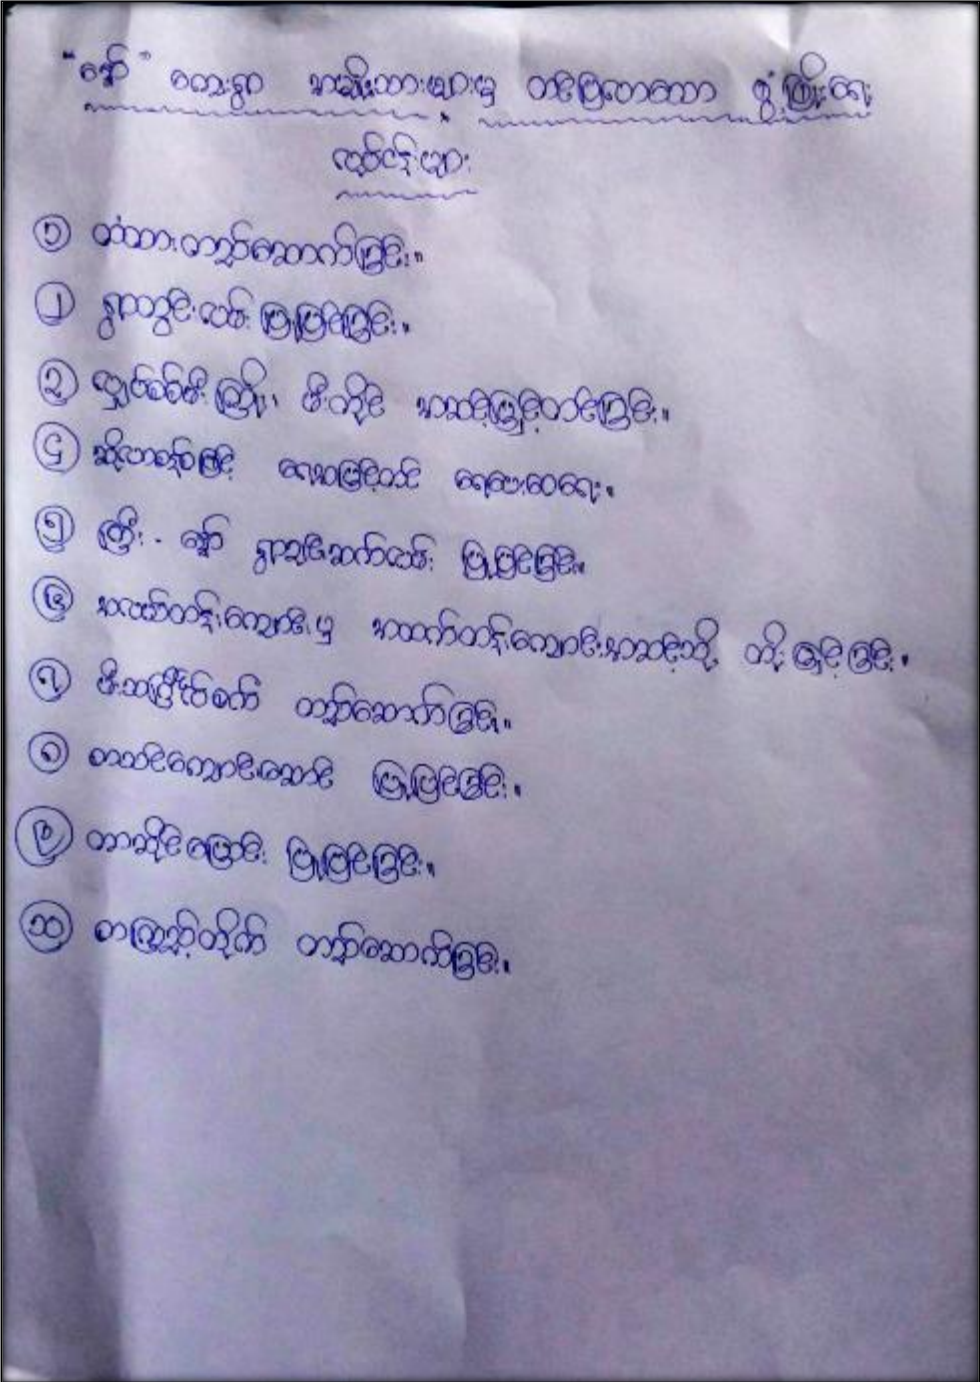 "ဇော်" ကျေးရွာ အမျိုးသားများမှ တင်ပြလာသော ဖွံ့ဖြိုးရေး
လုပ်ငန်းများ
၁ တံတားတည်ဆောက်ခြင်း။
၂ ရွာတွင်းလမ်း ပြုပြင်ခြင်း။
၃ လျှပ်စစ်မီးကြိုး၊ မီးတိုင် အဆင့်မြှင့်တင်ခြင်း။
၄ ဆိုလာစနစ်ဖြင့် ရေအမြင့်တင် ရေပေးဝေရေး။
၅ ကြီး - ဇော် ရွာချင်းဆက်လမ်း ပြုပြင်ခြင်း။
၆ အလယ်တန်းကျောင်းမှ အထက်တန်းကျောင်းအဆင့်သို့ တိုးမြှင့်ခြင်း။
၇ မီးသဂြိုဟ်စက် တည်ဆောက်ခြင်း။
၈ စာသင်ကျောင်းဆောင် ပြုပြင်ခြင်း။
၉ တာဆိုင်မြောင်း ပြုပြင်ခြင်း။
၁၀ စာကြည့်တိုက် တည်ဆောက်ခြင်း။